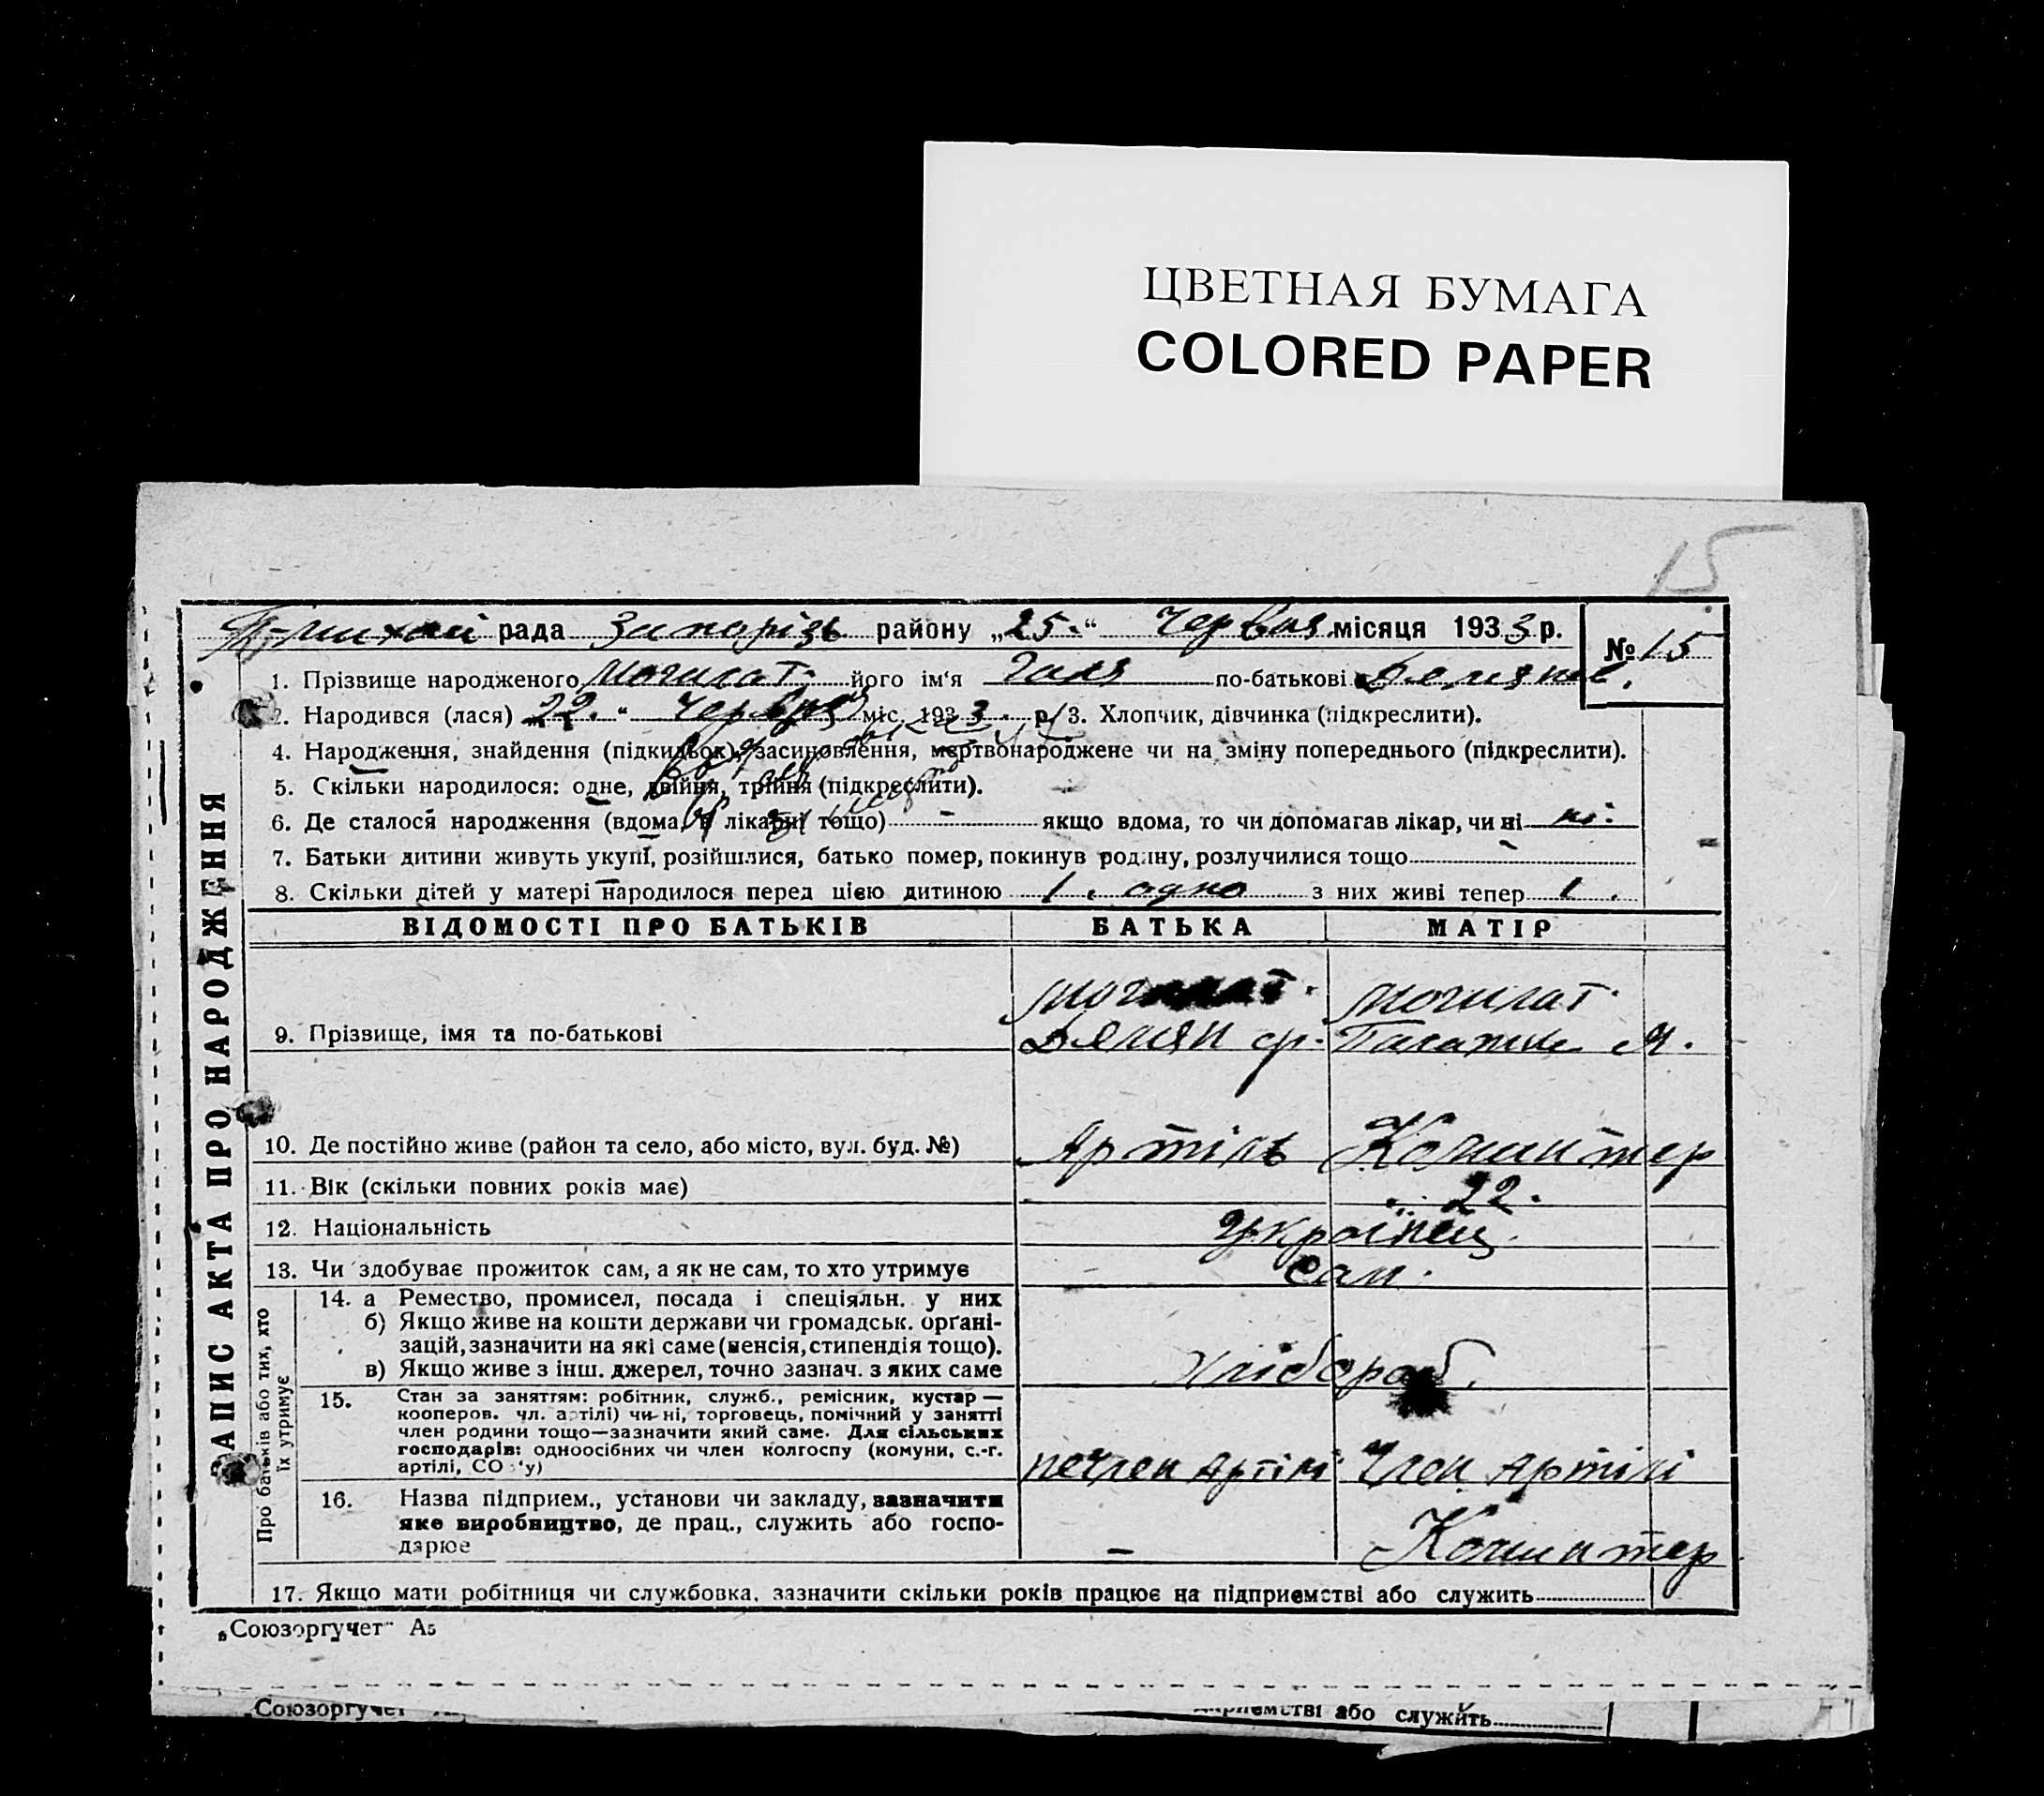 ЦВЕТНАЯ БУМАГА
COLORED PAPER
15
рада Запорізь району „25.“ Червня місяця 1933 р.
№ 15
1. Прізвище народженого Могилат. його ім‘я Галя по-батькові Демянов.
2. Народився (лася) 22. “ Червня міс. 1933. р. 3. Хлопчик, дівчинка (підкреслити).
4. Народження, знайдення (підкидьок), засиновлення, мертвонароджене чи на зміну попереднього (підкреслити).
5. Скільки народилося: одне, двійня, трійня (підкреслити).
6. Де сталося народження (вдома, в лікарні тощо) - якщо вдома, то чи допомагав лікар, чи ні ні.
7. Батьки дитини живуть укупі, розійшлися, батько помер, покинув родину, розлучилися тощо
8. Скільки дітей у матері народилося перед цією дитиною 1. одно з них живі тепер 1.
ВІДОМОСТІ ПРО БАТЬКІВ БАТЬКА МАТІР
Могилат. Могилат.
9. Прізвище, імя та по-батькові Демян ф. Палажка М.
10. Де постійно живе (район та село, або місто, вул. буд. №) Артіль Комінтер
11. Вік (скільки повних років має) 22.
12. Національність Українец.
13. Чи здобуває прожиток сам, а як не сам, то хто утримує сам.
14. а Ремество, промисел, посада і спеціяльн. у них
б) Якщо живе на кошти держави чи громадськ. орґані-
зацій, зазначити на які саме (пенсія, стипендія тощо).
в) Якщо живе з інш. джерел, точно зазнач. з яких саме
Хлібороб.
15. Стан за заняттям: робітник, служб., ремісник, кустар —
кооперов. чл. артілі) чи-ні, торговець, помічний у занятті
член родини тощо—зазначити який саме. Для сільських
господарів: одноосібних чи член колгоспу (комуни, с.-г.
артілі, СО ‘у)
нечлен Артілі Член Артілі
16. Назва підприєм., установи чи закладу, зазначити
яке виробництво, де прац., служить або госпо-
дарює
- Комінтер
17. Якщо мати робітниця чи службовка, зазначити скільки років працює на підприємстві або служить
ЗАПИС АКТА ПРО НАРОДЖЕННЯ
Про батьків або тих, хто
їх утримує
„Союзоргучет“ А5
„Союзоргучет
приємстві або служить